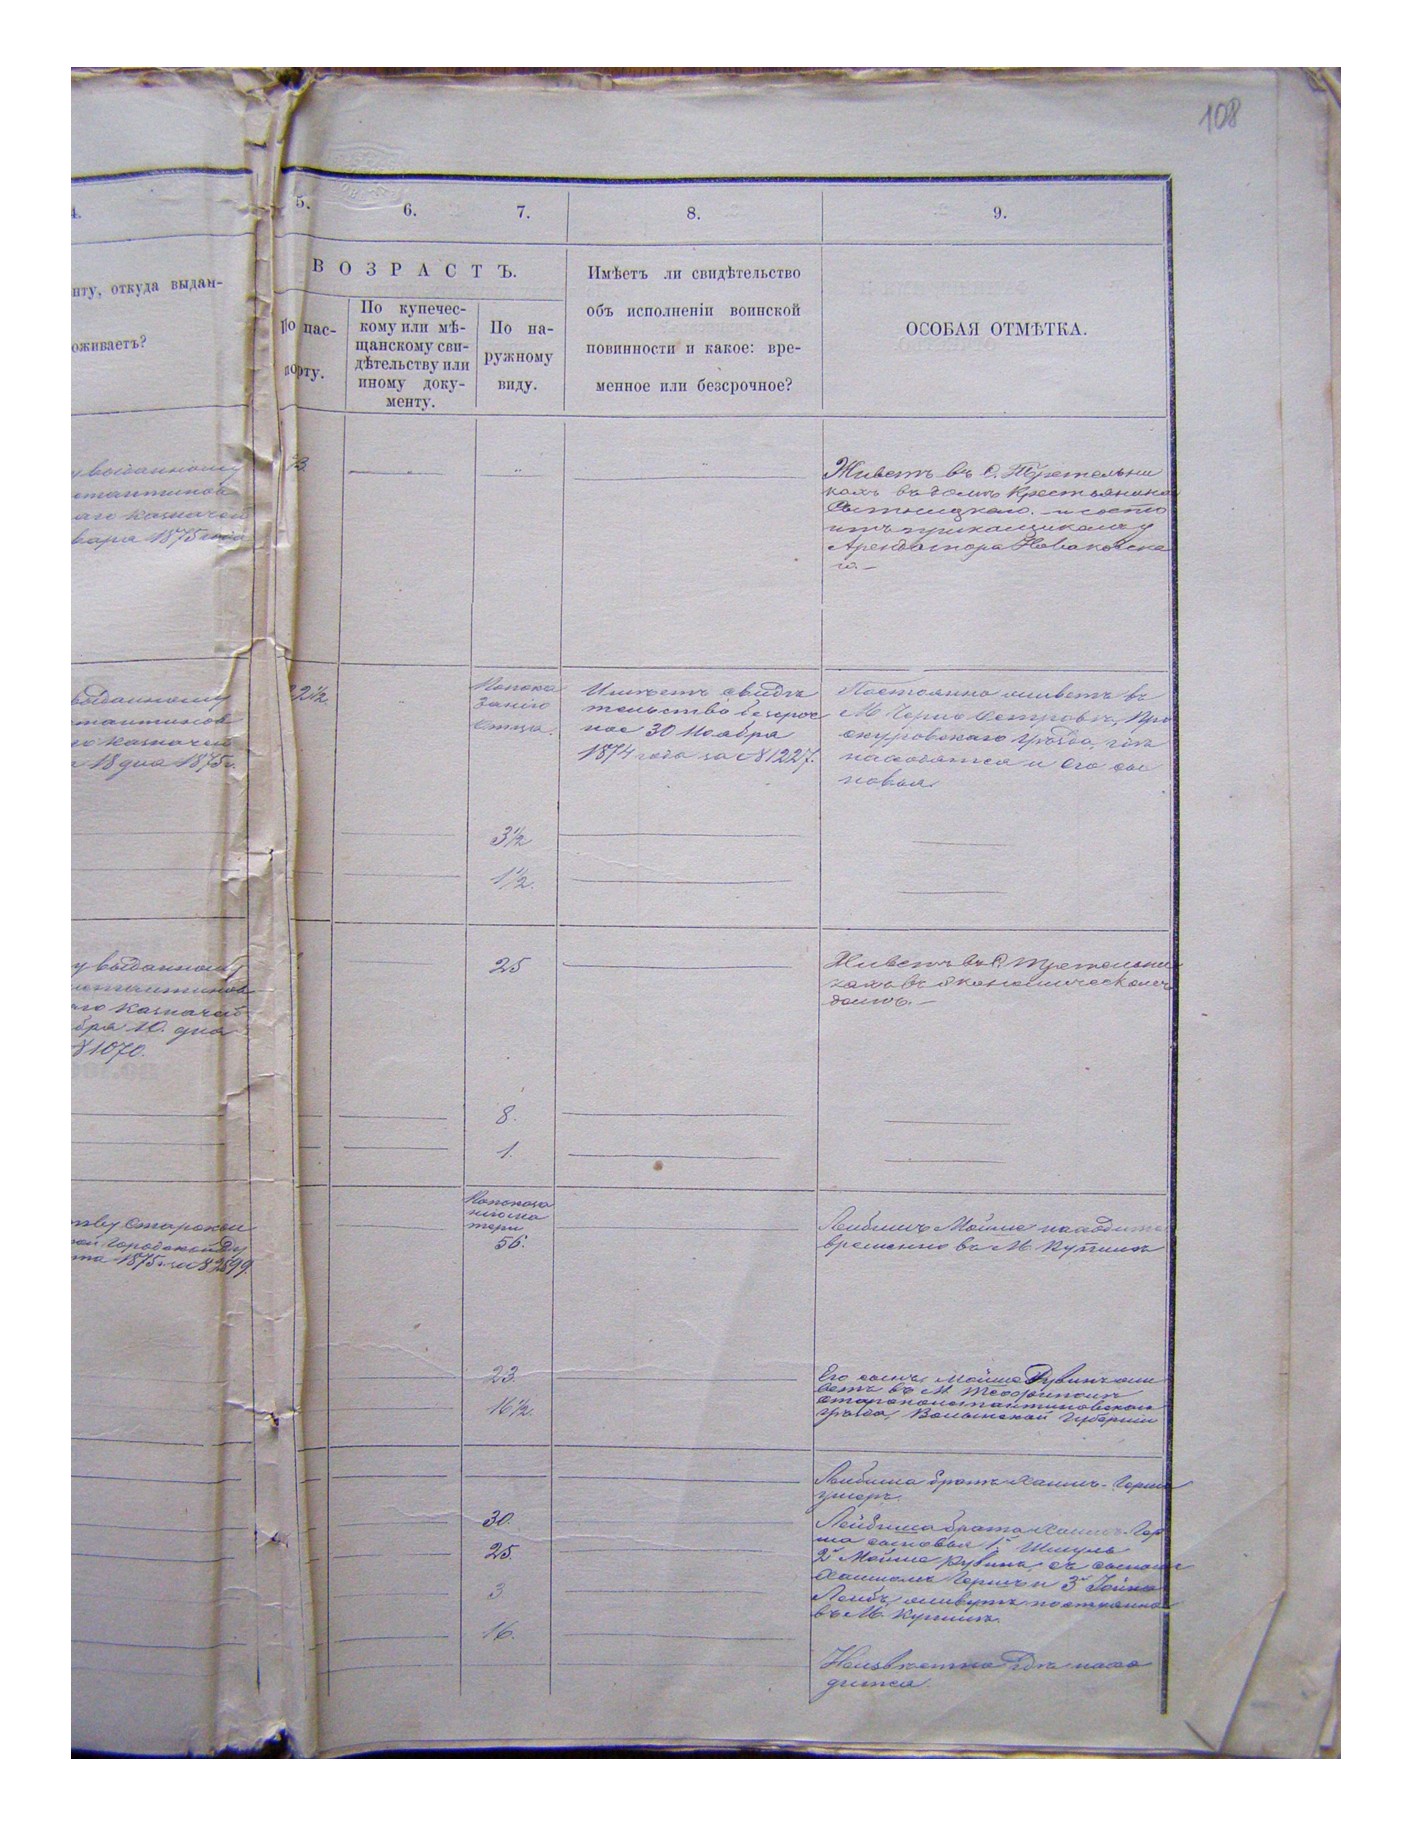 108
4.
5.
6.
7.
8.
9.
нту, откуда выдан-
оживаетъ?
ВОЗРАСТЪ.
По пас-
порту.
По купечес-
кому или мѣ-
щанскому сви-
дѣтельству или
иному доку-
менту.
По на-
ружному
виду.
Имѣетъ ли свидѣтельство
объ исполненіи воинской
повинности и какое: вре-
менное или безсрочное?
ОСОБАЯ ОТМѢТКА.
у выданному
стантинов
аго казначей
варя 1875 года
Живетъ въ С. Третельни
кахъ въ домѣ Крестьянина
и состо
итъ прикащикомъ у
Арендатора Новаковска
го. —
выданному
стантинов
го казначей
18 дня 1875 г.
22½.
Попока
занію
отца.
Имѣетъ свидѣ
тельство безсроч
ное 30 Ноября
1874 года за № 1227.
Постоянно живетъ въ
М. Черно Островѣ, Про
скуровскаго уѣзда, гдѣ
находятся и его сы
новья.
3½
1½.
у выданному
стантинов
аго казначей
бря 10. дня
№ 1070.
25
Живетъ въ С. Третельни
кахъ въ экономическомъ
домѣ. —
8.
1.
тву Староко
ной Городской Ду
та 1875 г. за № 2599.
Попоказа
нію ма
тери
56.
Лейбишъ Мойше находится
временно въ М. Купинѣ
23.
16½.
Его сынъ, Мойше Рувинъ жи
ветъ въ М. Теофиполѣ
Староконстантиновскаго
уѣзда, Волынской Губерніи
Лейбиша братъ Хаимъ-Герш
умеръ.
30.
25.
3
16.
Лейбиша брата Хаимъ-Гер
ша сыновья 1й Шмуль
2й Мойше Рувинъ, съ сыномъ
Хаимомъ Гершъ и 3й Іойна
Лейбъ, живутъ постоянно
въ М. Купинѣ.
Неизвѣстно гдѣ нахо
дится.